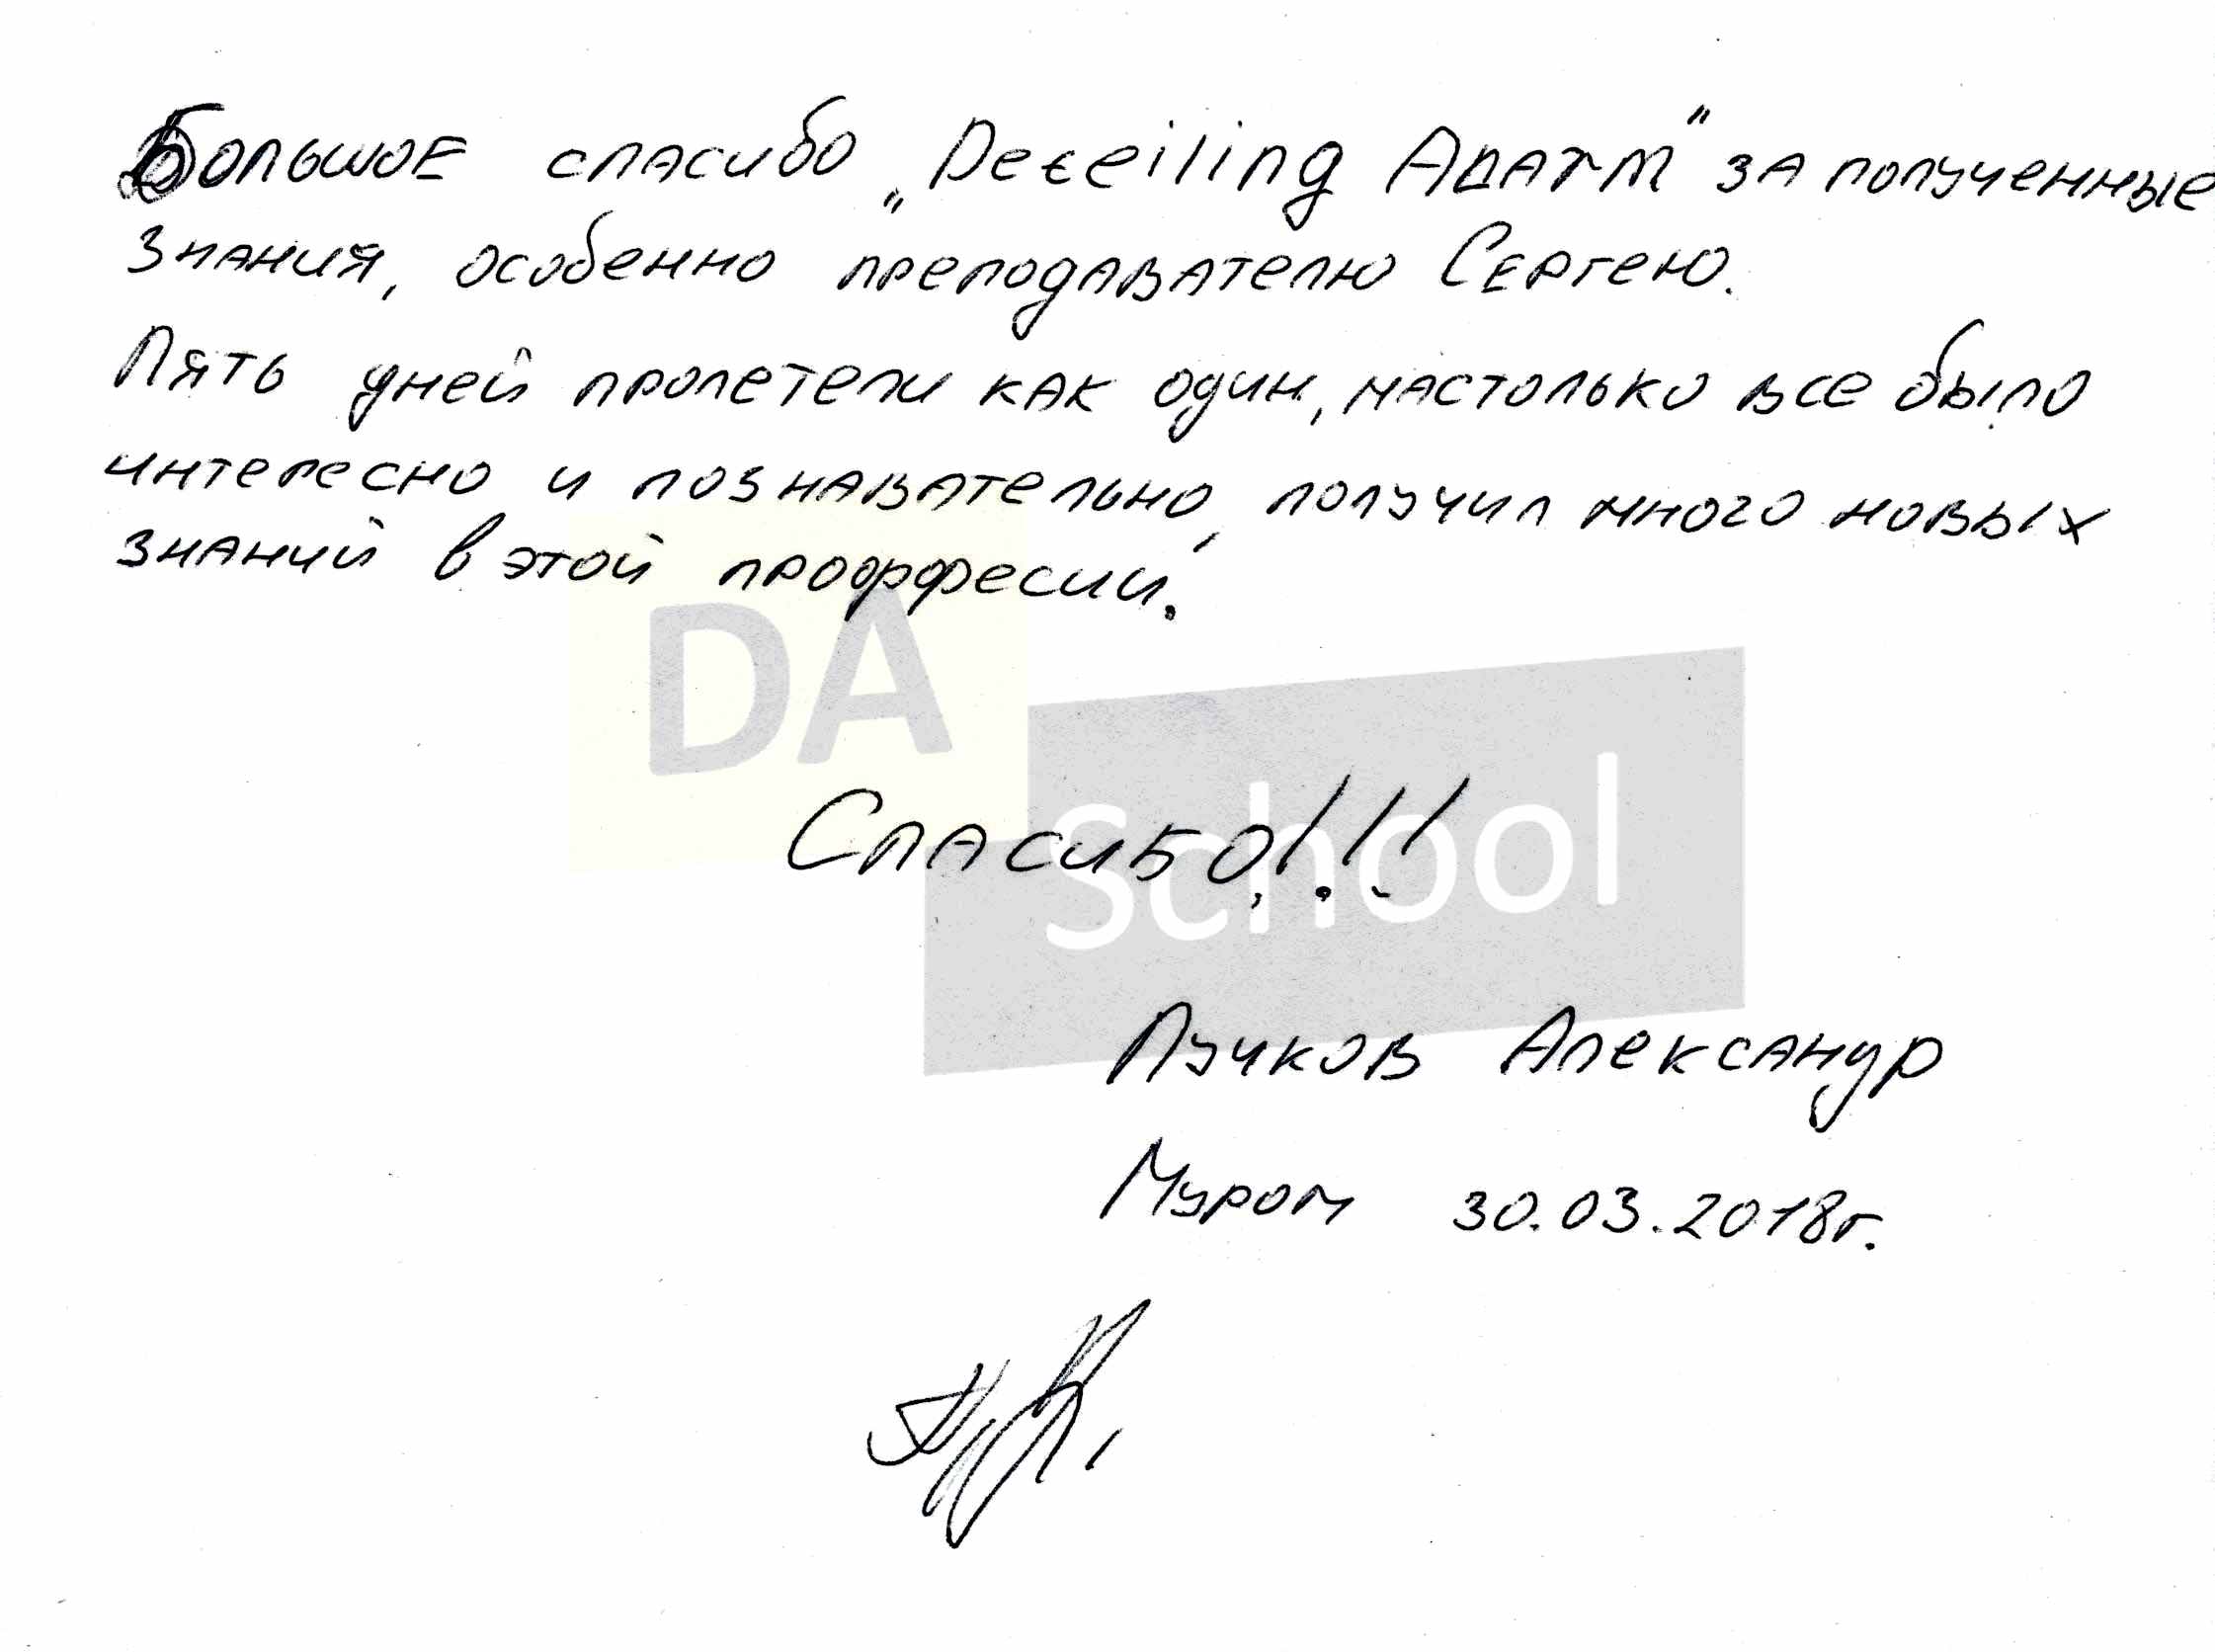 Большое спасибо „Deteiling Адатм" за полученные
знания, особенно преподавателю Сергею.
Пять дней пролетели как один, настолько все было
интересно и познавательно, получил много новых
знаний в этой проффесии.
DA
school
Спасибо!!!
Пучков Александр
Муром 30.03.2018г.